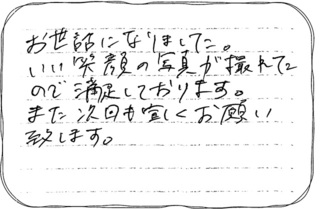 お世話になりました。
いい笑顔の写真が撮れた
ので満足しております。
また次回も宜しくお願い
致します。